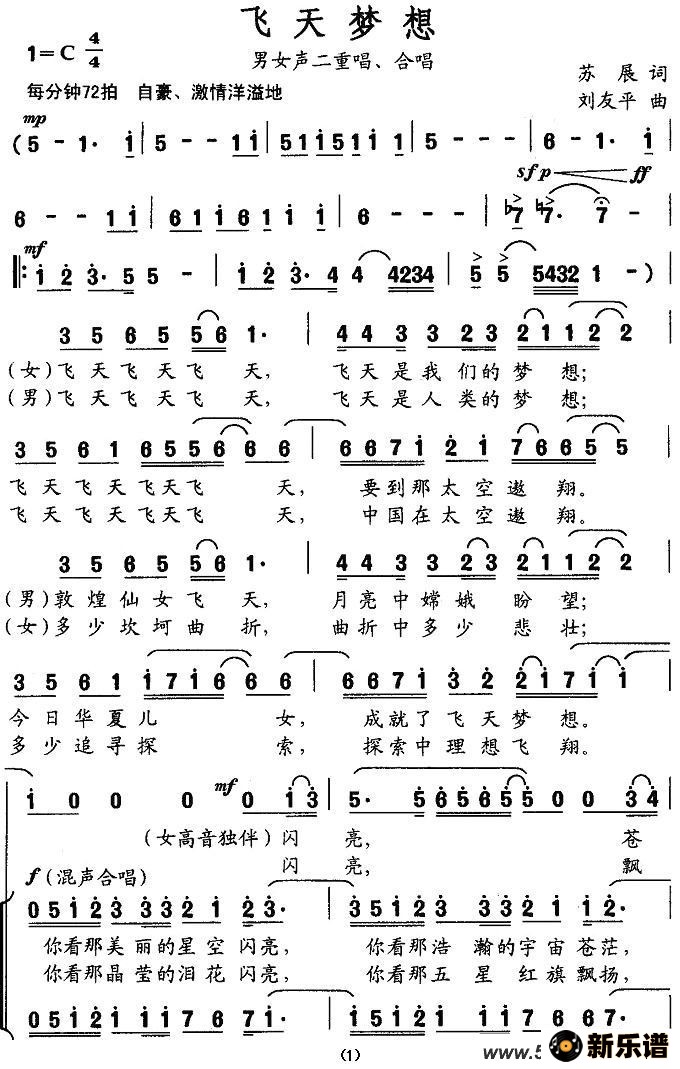 飞天梦想
1=C 4/4
男女声二重唱、合唱
苏 展 词
每分钟72拍 自豪、激情洋溢地
刘友平 曲
mp
(5 - 1· i | 5 - - 1 i | 5 1 i 5 1 i 5 i i | 5 - - - | 6 - 1· i
sfp ff
6 - - 1 i | 6 1 i 6 1 i 6 i i | 6 - - - | ♭7 ♭7· 7 -
mf
‖: i 2 3· 5 5 - | i 2 3· 4 4 4234 | 5 5 5432 1 - )
3 5 6 5 5 6 1· | 4 4 3 3 2 3 2 1 1 2 2 |
(女)飞天飞天飞 天, 飞天是我们的梦 想;
(男)飞天飞天飞 天, 飞天是人类的梦 想;
3 5 6 1 6 5 5 6 6 6 | 6 6 7 i 2 1 7 6 6 5 5
飞天飞天飞天飞 天, 要到那太空遨 翔。
飞天飞天飞天飞 天, 中国在太空遨 翔。
3 5 6 5 5 6 1· | 4 4 3 3 2 3 2 1 1 2 2 |
(男)敦煌仙女飞 天, 月亮中嫦娥 盼望;
(女)多少坎坷曲 折, 曲折中多少 悲壮;
3 5 6 1 i 7 i 6 6 6 | 6 6 7 i 3 2 2 i 7 i i |
今日华夏儿 女, 成就了飞天梦 想。
多少追寻探 索, 探索中理想飞 翔。
mf
i 0 0 0 0 i 3 | 5· 5 6 5 6 5 5 0 0 3 4
(女高音独伴)闪 亮, 苍
闪 亮, 飘
f (混声合唱)
0 5 i 2 3 3 3 2 i 2 3· | 3 5 i 2 3 3 3 2 i 2 2·
你看那美丽的星空闪亮, 你看那浩瀚的宇宙苍茫,
你看那晶莹的泪花闪亮, 你看那五星红旗飘扬,
0 5 i 2 i i i 7 6 7 i· | i 5 i 2 i i i 7 6 6 7·
(1)
www.5
新乐谱